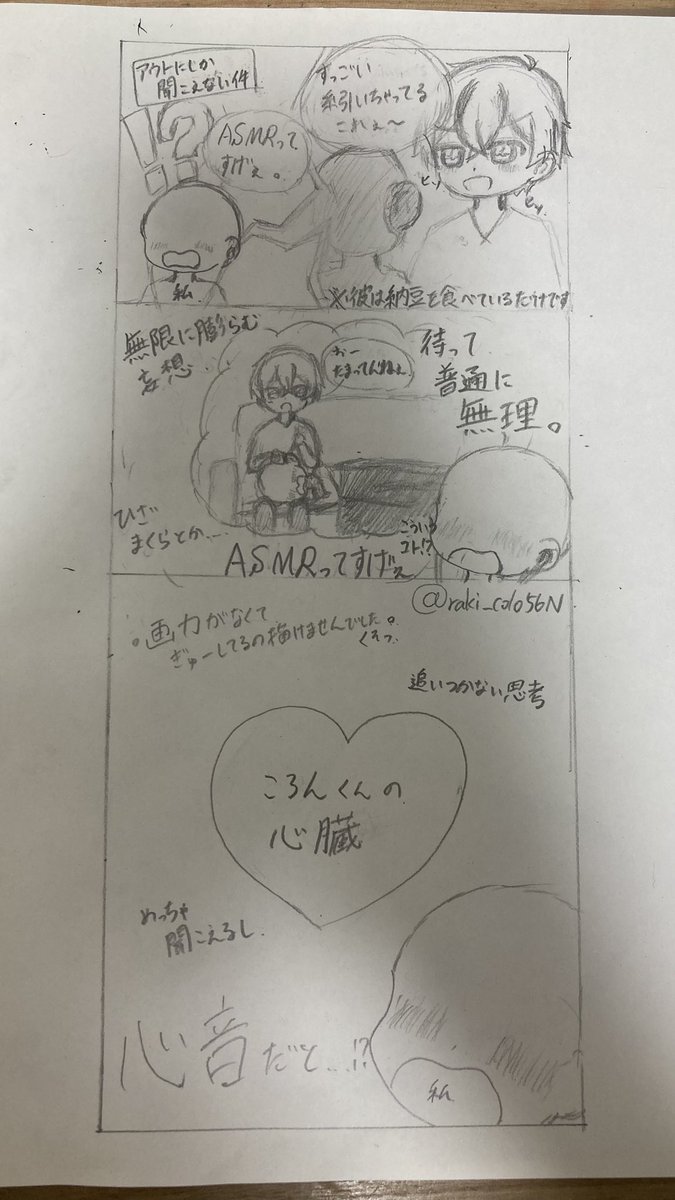 アウトにしか
聞こえない件
すっごい
糸引いちゃってる
これぇ〜
!?
ASMRって
すげぇ。
私
※彼は納豆を食べているだけです
無限に膨らむ
妄想…
待って
普通に
無理。
おー
たまってんねぇ
ひざ
まくらとか…
こういう
コト!?
ASMRってすげぇ
@raki_colo56N
画力がなくて
ぎゅーしてるの描けませんでした。
くそっ
追いつかない思考
ころんくんの
心臓
めっちゃ
聞こえるし
心音だと…!?
私